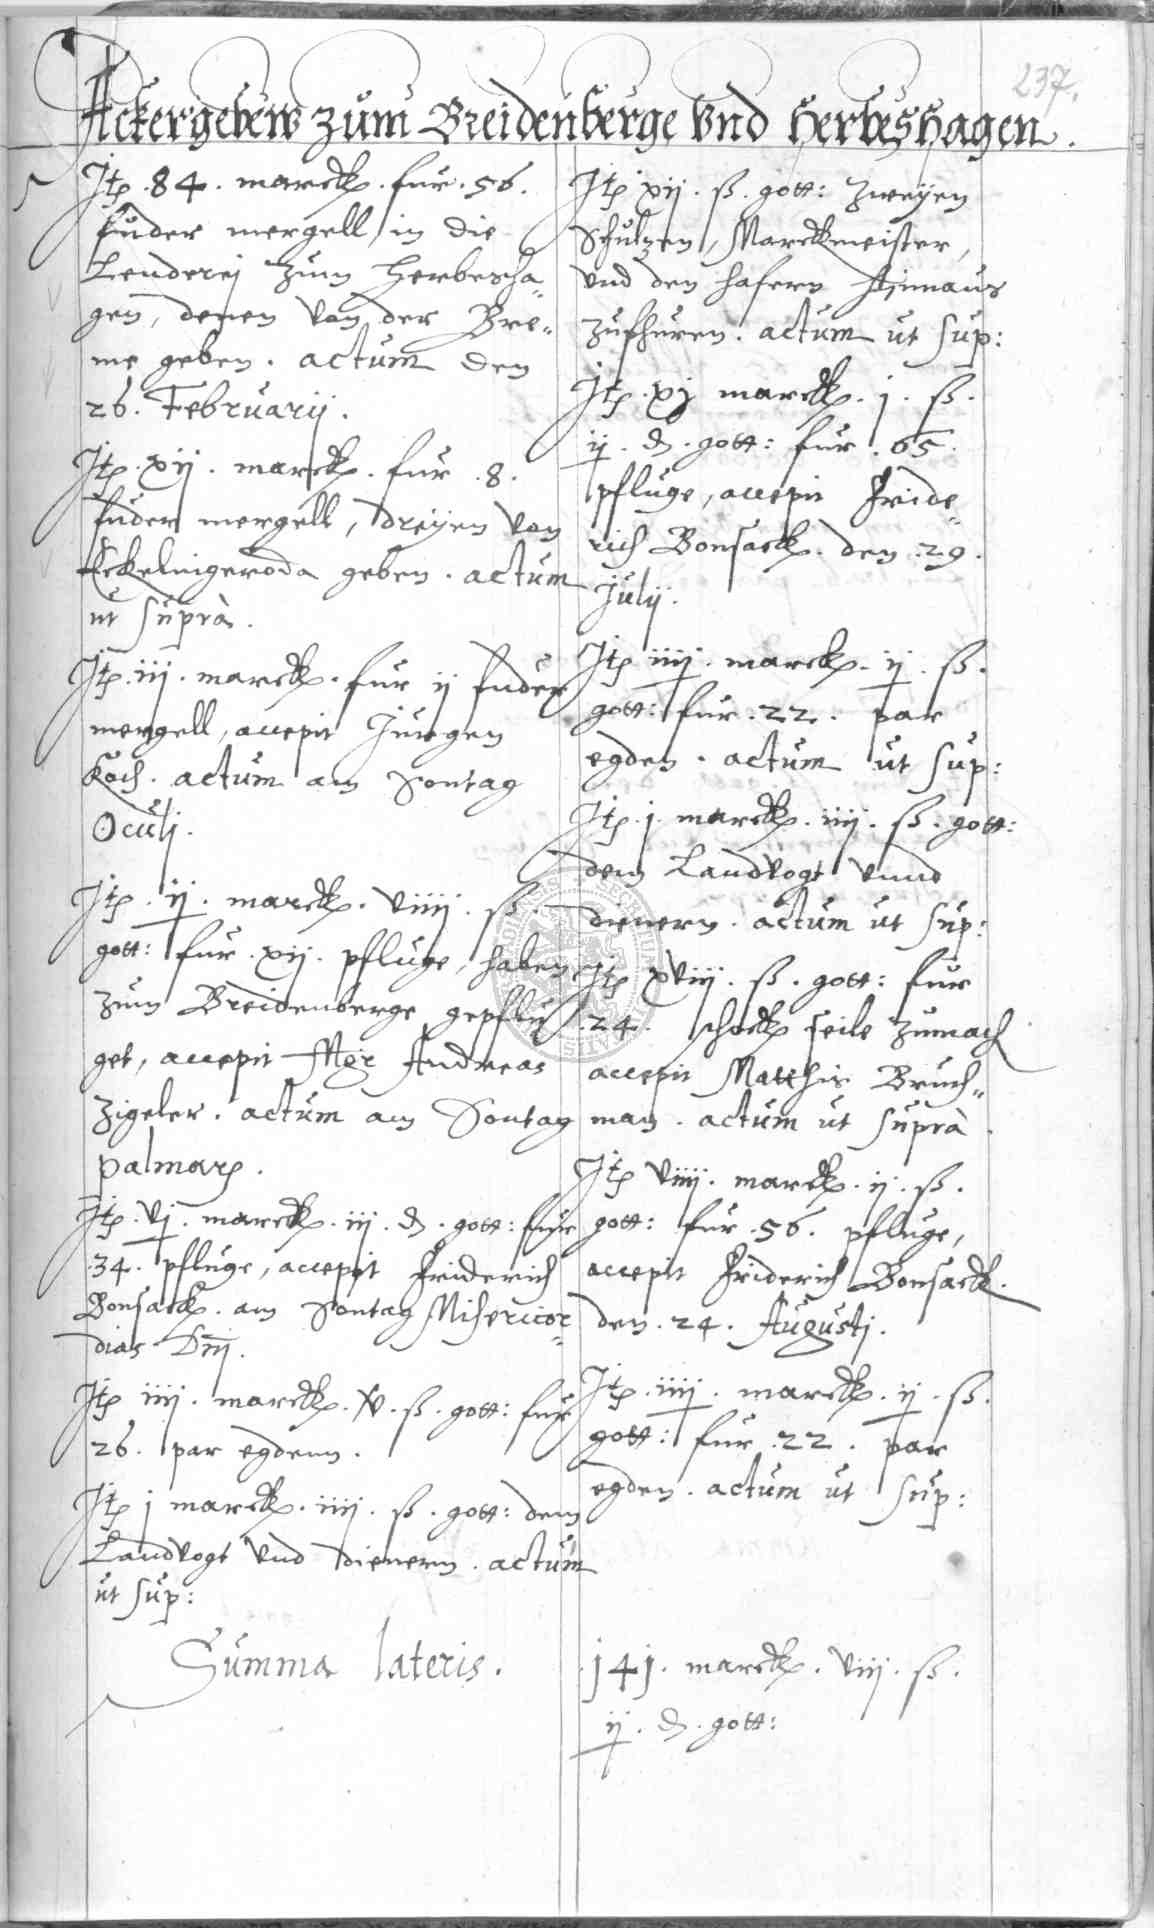 237.
Ackergebew zum Breidenberge Vnd Herbeshagen.
Itp .84. marck. fur .56.
fuder mergell in die
Lenderej zum Herbesha„
gen, denen von der Bre„
me geben. actum den
26. Februarij.
Itp. xij. marck. fur .8.
fuder mergell, dreyen von
Eckelingeroda geben. actum
ut suprà.
Itp. iij. marck. fur ij fuder
mergell, accepit Jurgen
Koch. actum am Sontag
Oculj.
Itp. ij. marck. viiij. ß.
gott: fur. xij. pfluge, haben
zum Breidenberge gepflu
get, accepit Mgr Andreas
Zigeler. actum am Sontag
palmarum.
Itp. vj. marck. iij. d. gott: fur
34. pfluge, accepit Friderich
Bonsack. am Sontag Misericor„
dias Dnj.
Itp iiij. marck. xv. ß. gott: fur
26. par egdenn.
Itp j marck. iiij. ß. gott: dem
Landvogt vnd dienern. actum
ut sup:
Itp xij. ß. gott: zweyen
Schulzen, Marckmeister,
vnd den hafern hinaus
zufhuren. actum ut sup:
Itp. xj marck. j. ß.
ij. d. gott: fur .65.
pfluge, accepit Fride„
rich Bonsack. den .29.
Julij.
Itp iiij. marck. ij. ß.
gott: fur .22. par
egden. actum ut sup:
Itp. j. marck. iiij. ß. gott:
dem Landvogt vnnd
dienern. actum ut sup:
Itp xviij. ß. gott: fur
.24. schock seile zumach
accepit Matthis Bruch„
man. actum ut suprà.
Itp viiij. marck. ij. ß.
gott: fur .56. pfluge,
accepit Friderich Bonsack.
den .24. Augustj.
Itp .iiij. marck. ij. ß.
gott: fur .22. par
egden. actum ut sup:
Summa lateris.
j4j. marck. viij. ß.
ij. d. gott: